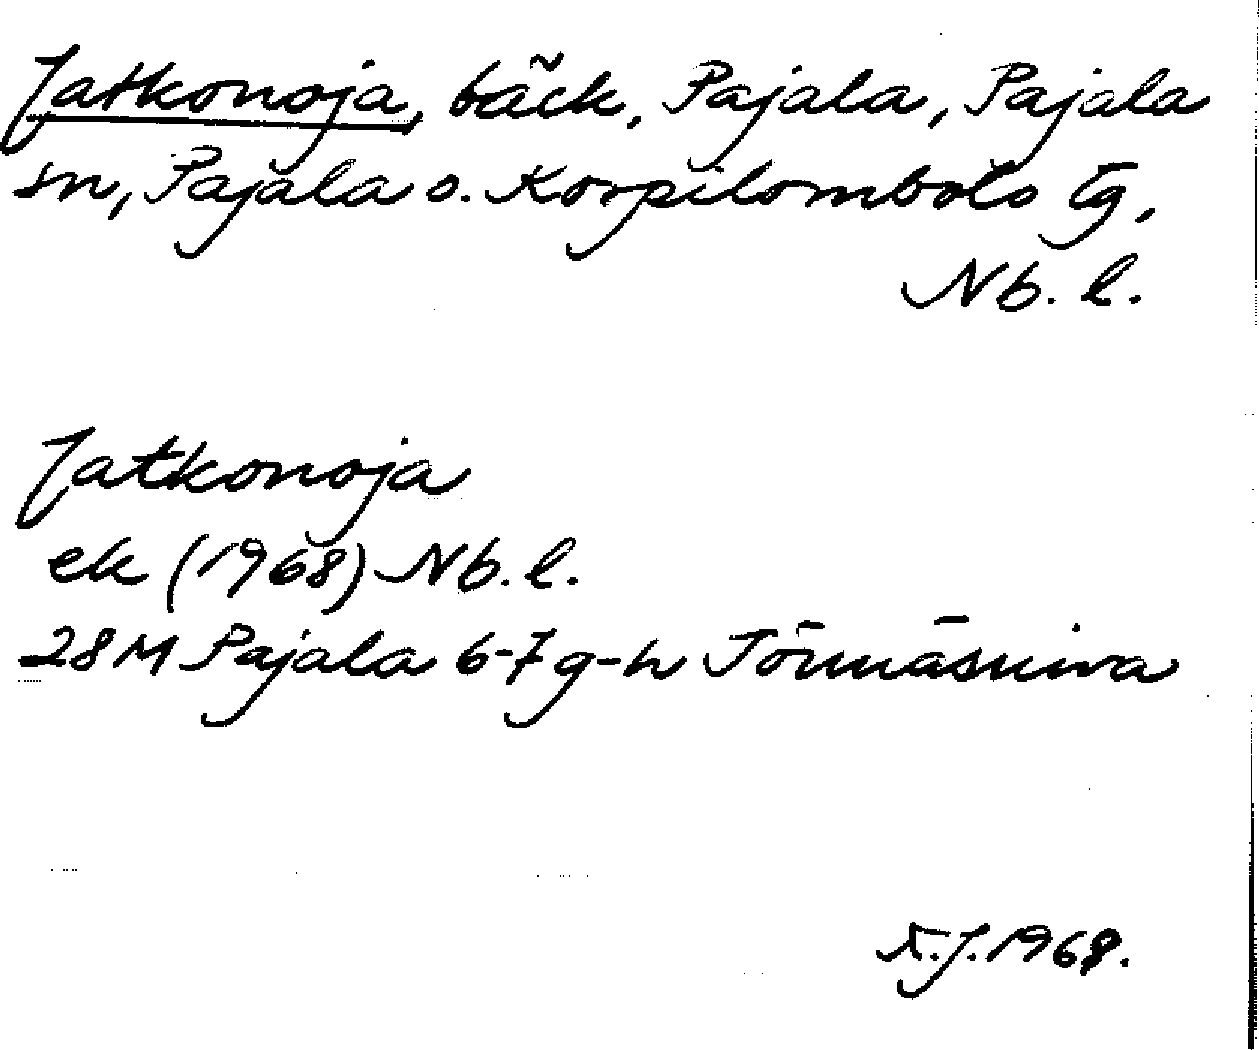 Jatkonoja, bäck, Pajala, Pajala
sn, Pajala o. Korpilombolo tg,
Nb. l.
Jatkonoja
ek (1968) Nb. l.
28M Pajala 6-7 g-h Törmäsniva
1968.